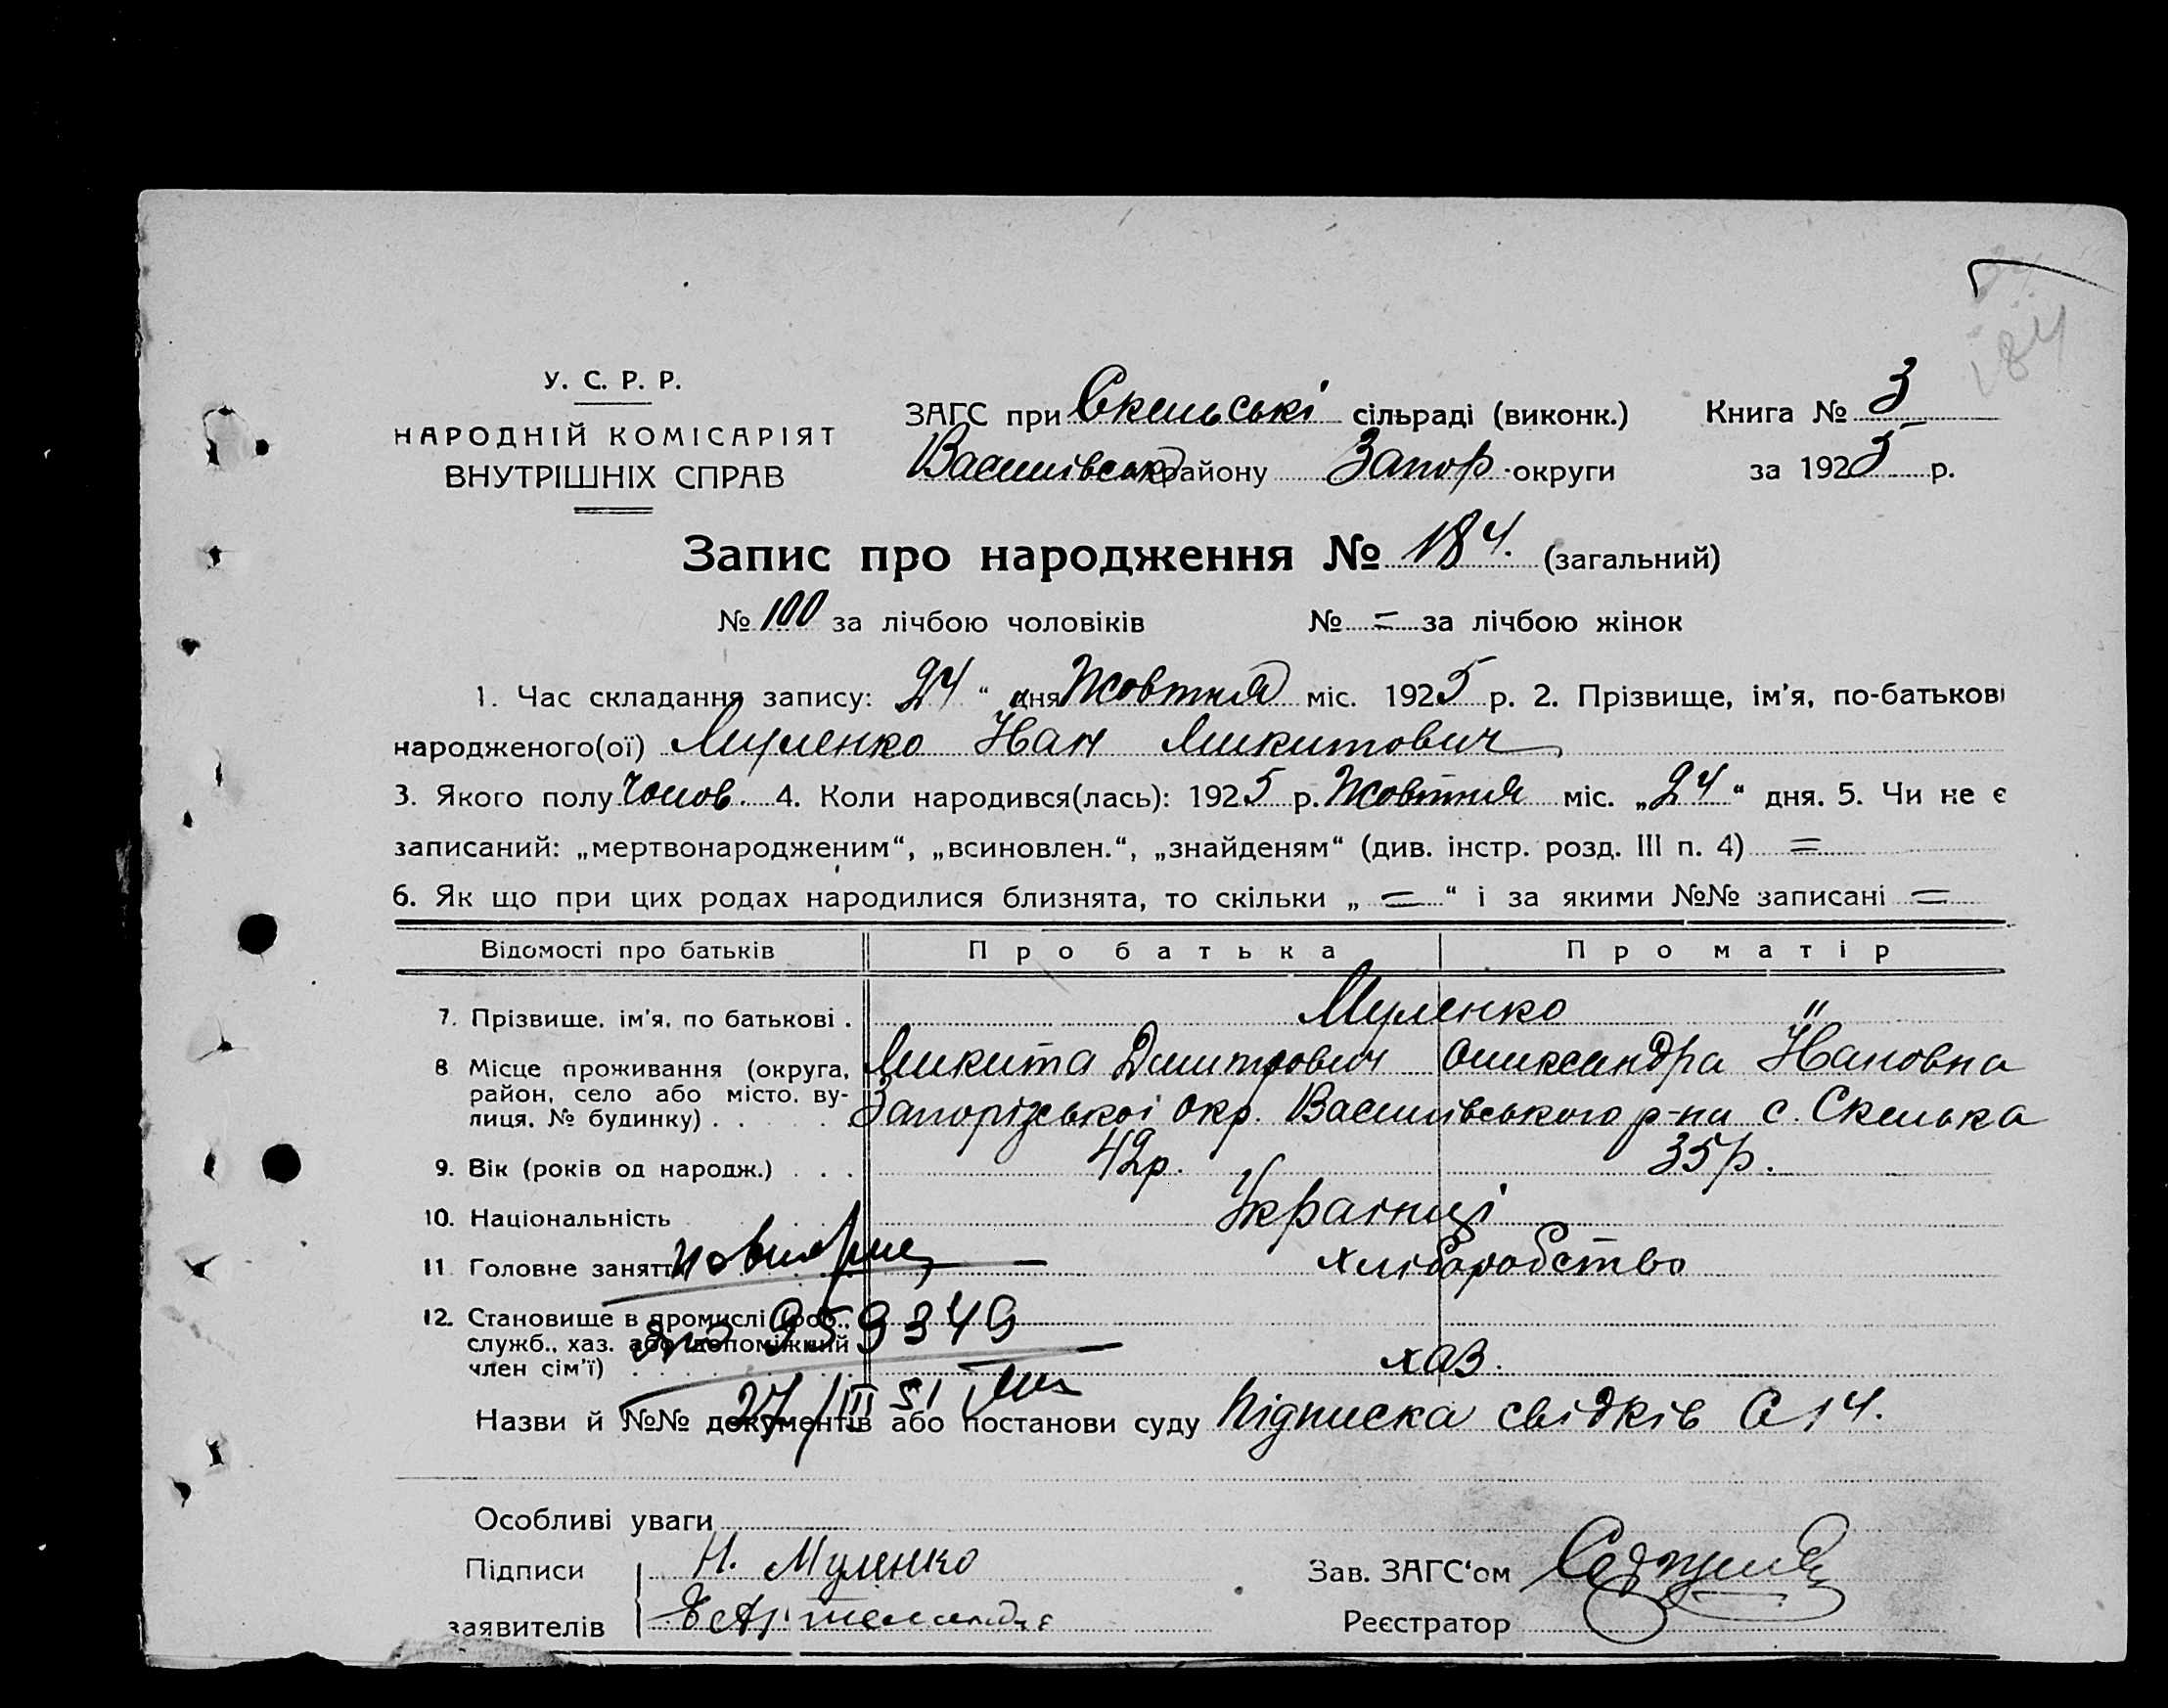 184
У. С. Р. Р.
НАРОДНІЙ КОМІСАРІЯТ
ВНУТРІШНІХ СПРАВ
ЗАГС при Скельські сільраді (виконк.) Книга № 3
Василівськ району Запор. округи за 1925 р.
Запис про народження № 184. (загальний)
№ 100 за лічбою чоловіків № = за лічбою жінок
1. Час складання запису: 24 “ дня Жовтня міс. 1925 р. 2. Прізвище, ім'я, по-батькові
народженого(ої) Муленко Іван Микитович
3. Якого полу Чолов. 4. Коли народився(лась): 1925 р. Жовтня міс. „24“ дня. 5. Чи не є
записаний: „мертвонародженим“, „всиновлен.“, „знайденям“ (див. інстр. розд. III п. 4) =
6. Як що при цих родах народилися близнята, то скільки „ = “ і за якими №№ записані =
Відомості про батьків Про батька Про матір
7. Прізвище, ім'я, по батькові . Муленко "
Микита Дмитрович Олександра Ивановна
8 Місце проживання (округа, район, село або місто, вулиця, № будинку) . . . . Запорізської окр. Василівського р-на с. Скелька
9. Вік (років од народж.) . . . 42р. 35р.
10. Національність Українці
11. Головне заняття хліборобство
12. Становище в промислі (роб., служб., хаз. або допоміжний член сім'ї) . хаз.
959349
27/III 51
Назви й №№ документів або постанови суду Підписка свідків А 14.
Особливі уваги
Підписи Н. Муленко Зав. ЗАГС'ом
заявителів Реєстратор